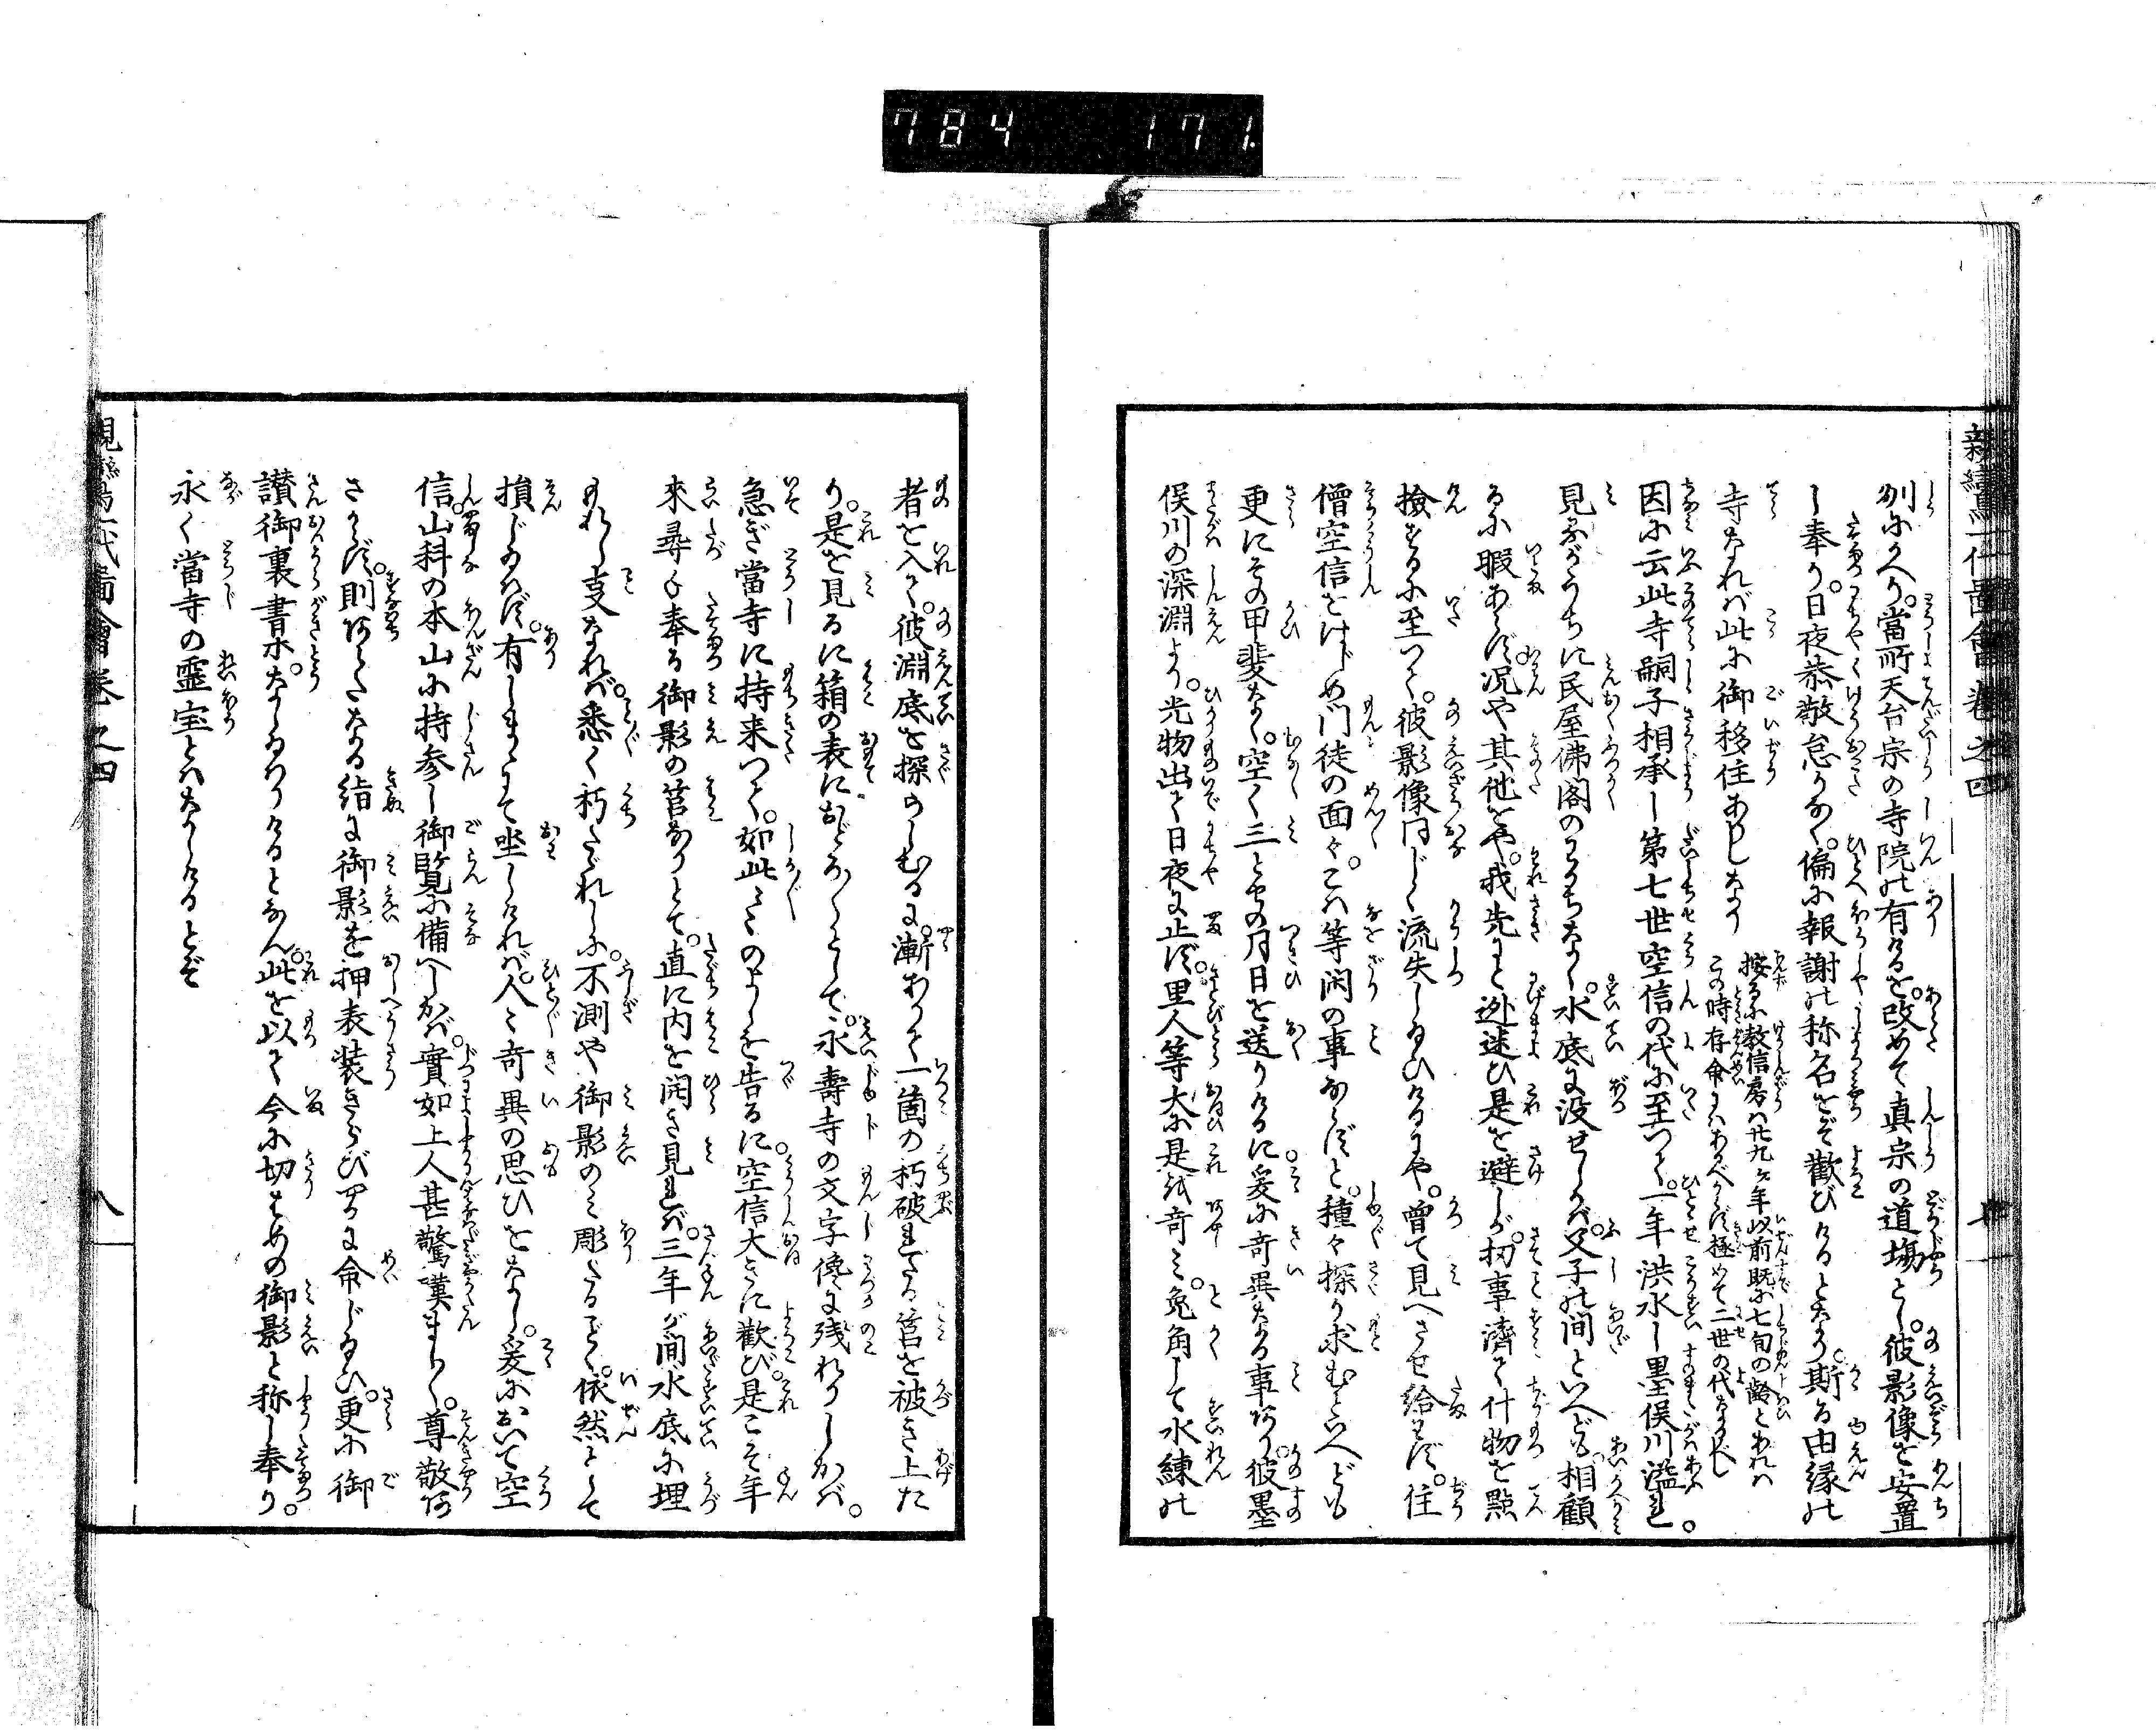 784 171
親鸞一代圖會 卷之四
刕にかへり。當所天台宗の寺院の有けるを。改めて真宗の道塲とし。彼影像を安置
し奉り。日夜恭敬怠りなく。偏に報謝の称名をぞ歡びけるとなり。斯る由縁の
寺なれば此に御移住ありしなり
按るに教信房は廿九ケ年以前既に七旬の齢とあれは
この時存命にはあるべからず極めて二世の代なるべし
因に云此寺嗣子相承し第七世空信の代に至つて。一年洪水し墨俣川溢れ。
見るがうちに民屋佛閣のわかちなく。水底に没せしかば。父子の間といへども。相顧
るに暇あらず。况や其他をや。我先にと迯迷ひ是を避しが。扨事濟て什物を㸃
撿するに至つて。彼影像同じく流失し給ひけるにや。曽て見へさせ給はず。住
僧空信をはじめ門徒の面々。こは等閑の事ならずと。種々探り求むといへども
更にその甲斐なく。空く三とせの月日を送りけるに。爰に奇異なる事あり。彼墨
俣川の深淵より。光物出て日夜に止ず。里人等大に是を奇み。兎角して水練の
者を入て。彼淵底を探らしむるに。漸ありて一箇の朽破れたる筥を被き上た
り。是を見るに箱の表におどろ〳〵として。永壽寺の文字僅に残れりしかば。
急ぎ當寺に持来つて。如此〳〵のよしを告るに。空信大きに歡び。是こそ年
來尋ね奉る御影の筥なりとて。直に内を開き見れば。三年が間水底に埋
もれし支なれば。悉く朽たゞれしに。不測や御影のみ彫たるごとく。依然として
損じ給はず。有しまゝにて坐しければ。人々奇異の思ひをなし。爰において空
信。山科の本山に持参し御覧に備へしかば。實如上人甚驚嘆ましく。尊敬あ
さからず。則あらたなる絹に御影を押表装きらびやかに命じ給ひ。更に御
讃御裏書ホ。なし給りけるとなん。此を以て今に切はめの御影と称し奉り。
永く當寺の靈宝とはなしけるとぞ
親鸞一代圖會 卷之四 八